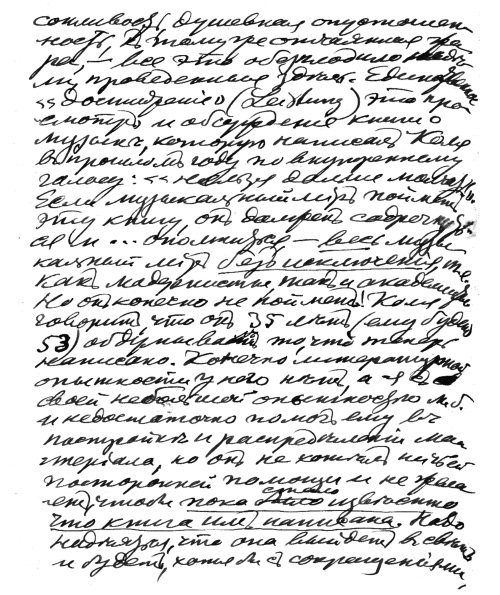 сонливость, душевная опустошен-
ность, къ тому же отчаянная жа-
ра, — все это обезглодило
ли, проведенныя здѣсь. Единственное
"достиженіе" (Leistung) это про-
смотръ и обсужденіе книги о
музыкѣ, которую написалъ Коля
въ прошломъ году по внутреннему
голосу: "нельзя далѣе молчать".
Если музыкальный міръ пойметъ
эту книгу, онъ долженъ содрогнуть-
ся и ... — весь музы-
кальный міръ безъ исключенія,
какъ модернисты, такъ и академики.
Но онъ конечно не пойметъ! Коля
говоритъ что онъ 35 лѣтъ (ему будетъ
53) обдумывалъ то, что теперь
написано. Конечно литературной
опытности у него нѣтъ, а я со
своей небольшой опытностью м.б.
и недостаточно помогъ ему въ
постройкѣ и распредѣленіи ма-
теріала, но онъ не хочетъ ничьей
посторонней помощи и не жела-
етъ, чтобы пока стало извѣстно
что книга имъ написана. Надо
надѣяться, что она выйдетъ въ свѣтъ
и будетъ, хотя бы съ сокращеніями,